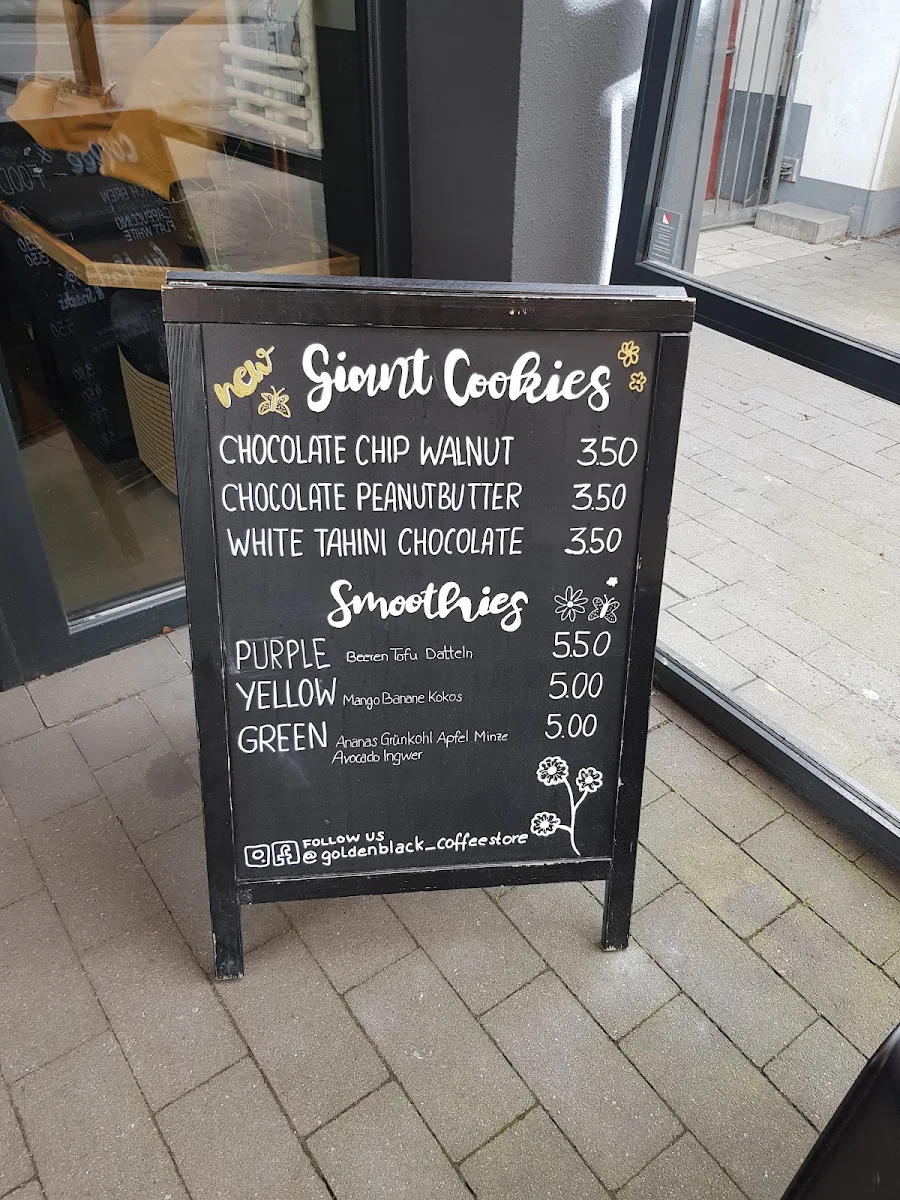 new Giant Cookies
CHOCOLATE CHIP WALNUT 3.50
CHOCOLATE PEANUTBUTTER 3.50
WHITE TAHINI CHOCOLATE 3.50
Smoothies
PURPLE Beeren Tofu Datteln 5.50
YELLOW Mango Banane Kokos 5.00
GREEN Ananas Grünkohl Apfel Minze 5.00
Avocado Ingwer
FOLLOW US
@goldenblack_coffeestore
coffee &
FOOD
CAPPUCCINO
FLAT WHITE